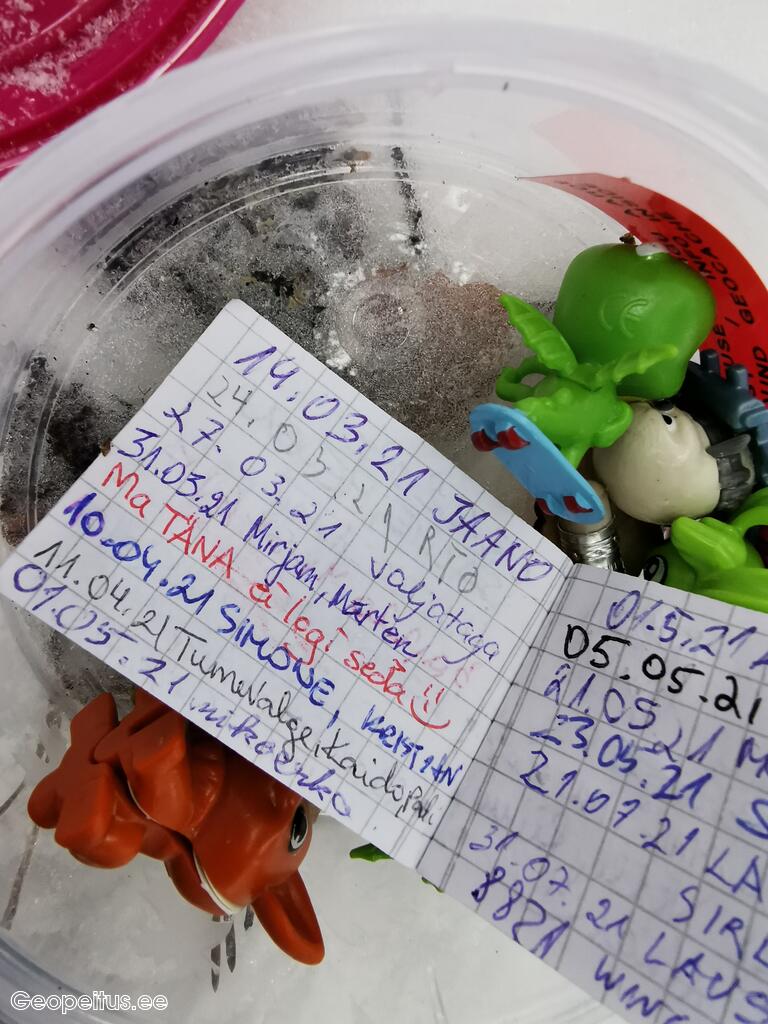 14.03.21 JAANO
24.03.21 RTO
27.03.21 valjataga
31.03.21 Mirjam, Marten
Ma TÄNA ei legi seda!!
10.04.21 SIMONE, KRISTJAN
11.04.21 Tumevalge, Kaido
01.05.21 mikoerko
01.5.21
05.05.21
21.05.21 M
23.05.21 S
21.07.21 LA
SIRL
31.07.21 LAUS
8821 WING
GEOCACHE
Geopeitus.ee